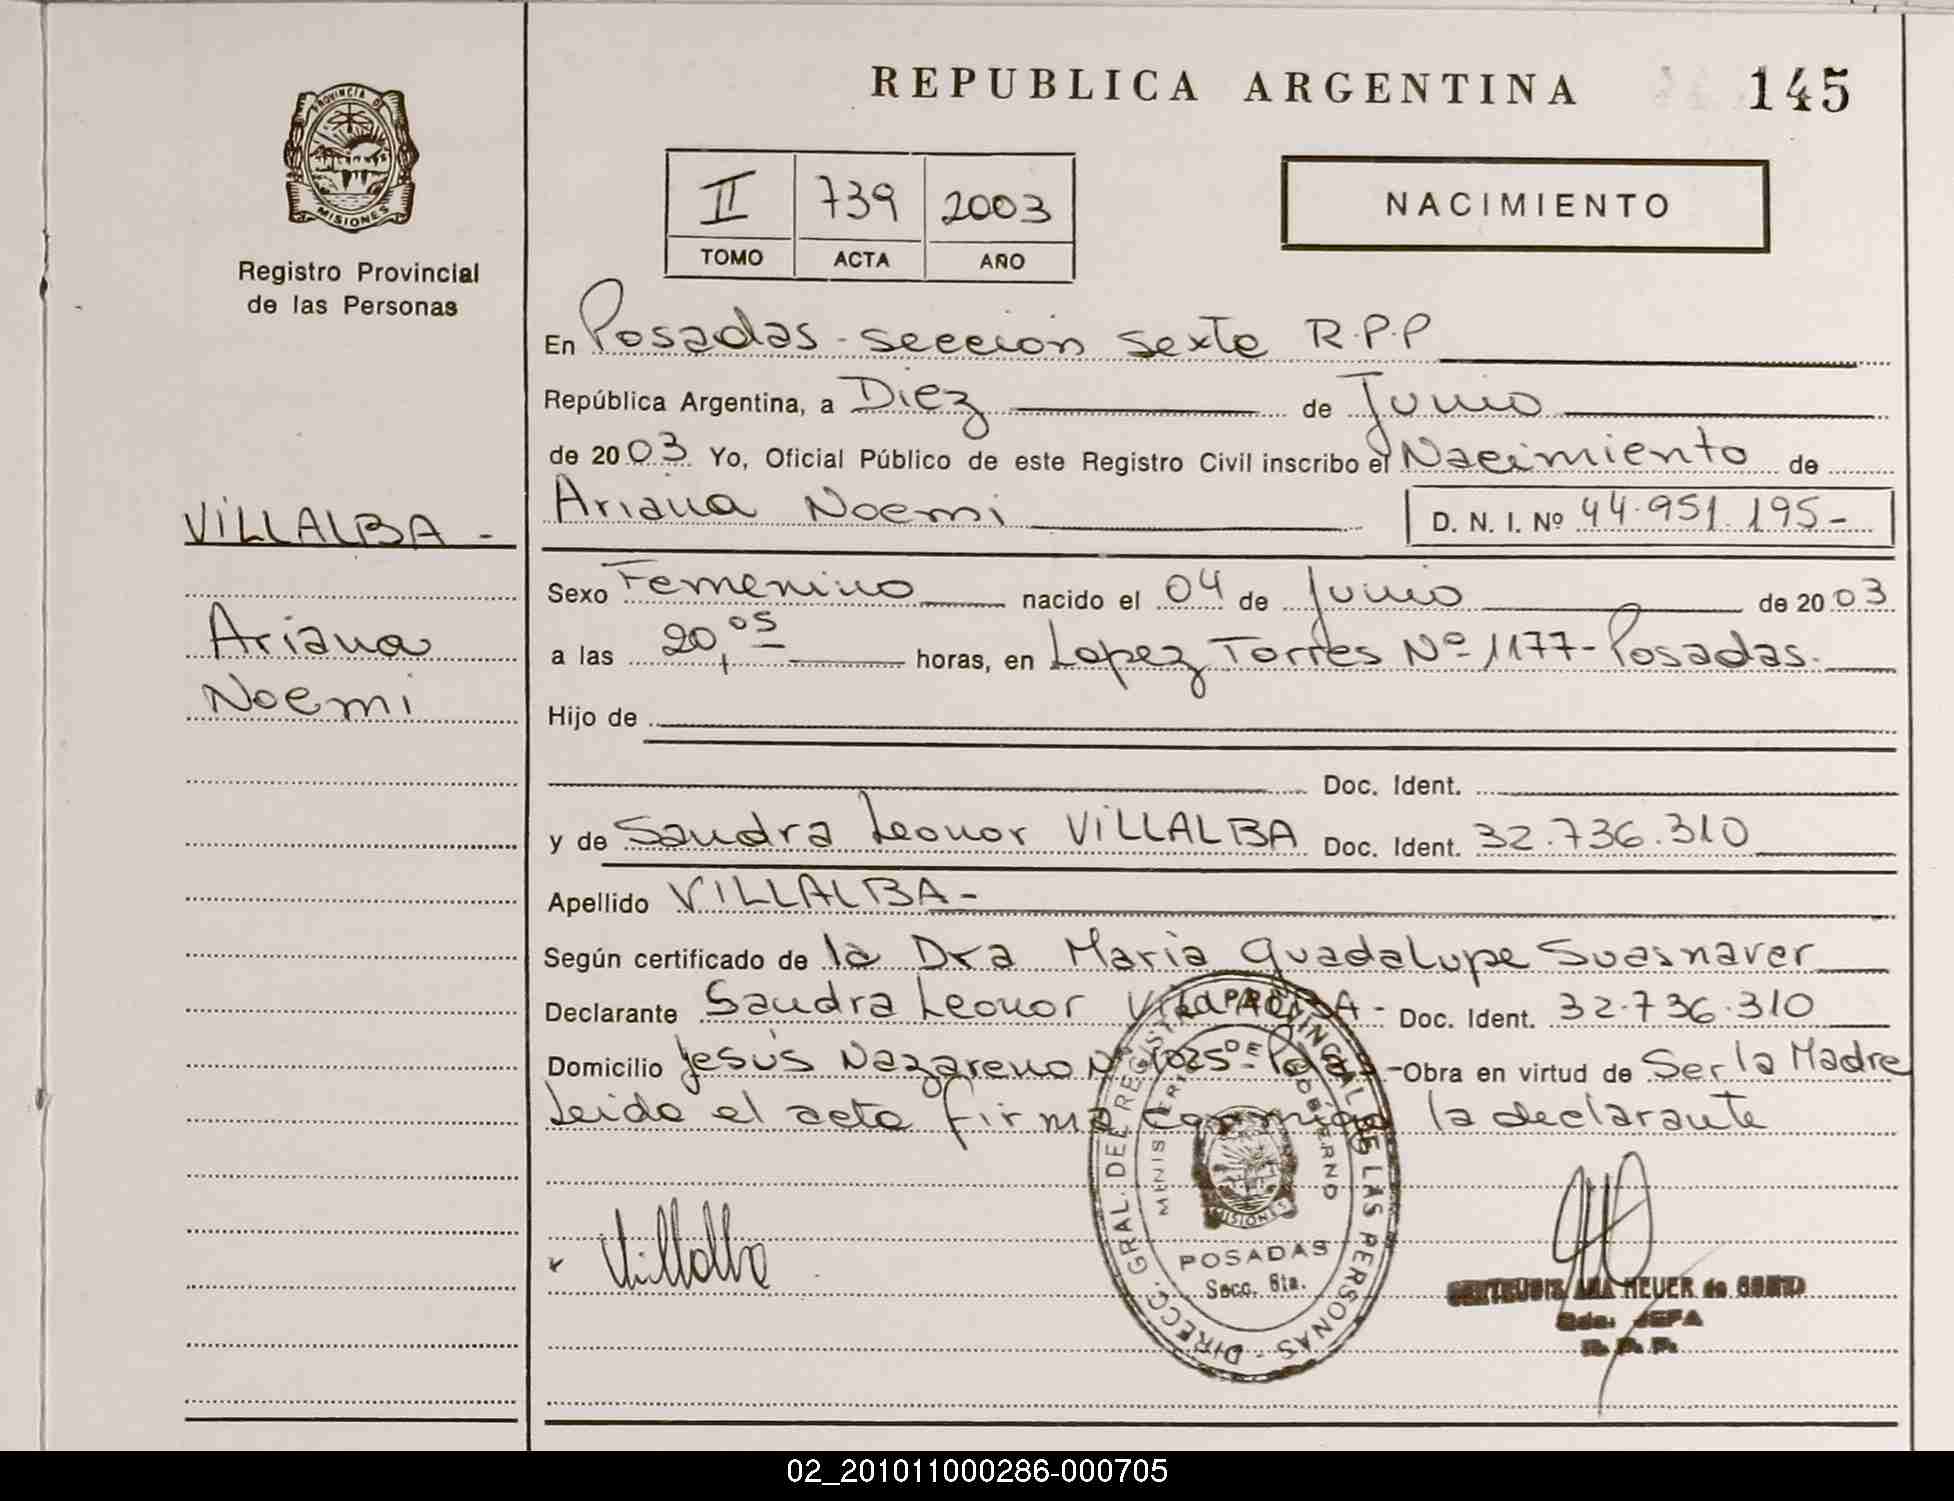 REPUBLICA ARGENTINA 145
PROVINCIA DE
MISIONES
Registro Provincial
de las Personas
II 739 2003
TOMO ACTA AÑO
NACIMIENTO
En Posadas - seccion sexta R.P.P
República Argentina, a Diez de Junio
de 2003 Yo, Oficial Público de este Registro Civil inscribo el Nacimiento de
Ariana Noemi D. N. I. Nº 44.951.195-
VILLALBA -
Ariana
Noemi
Sexo Femenino nacido el 04 de Junio de 2003
a las 20,05 horas, en Lopez Torres Nº 1177- Posadas.
Hijo de
Doc. Ident.
y de Sandra Leonor VILLALBA Doc. Ident. 32.736.310
Apellido VILLALBA -
Según certificado de la Dra Maria Guadalupe Suasnaver
Declarante Sandra Leonor VILLALBA - Doc. Ident. 32.736.310
Domicilio Jesús Nazareno Nº - Obra en virtud de Ser la Madre
Leida el acta firma conmigo la declarante
Villalba
DIRECC. GRAL. DE REGISTRO PROVINCIAL DE LAS PERSONAS -
MINISTERIO DE GOBIERNO
MISIONES
POSADAS
Secc. 6ta.
MEUER de
JEFA
R. P. P.
02_201011000286-000705